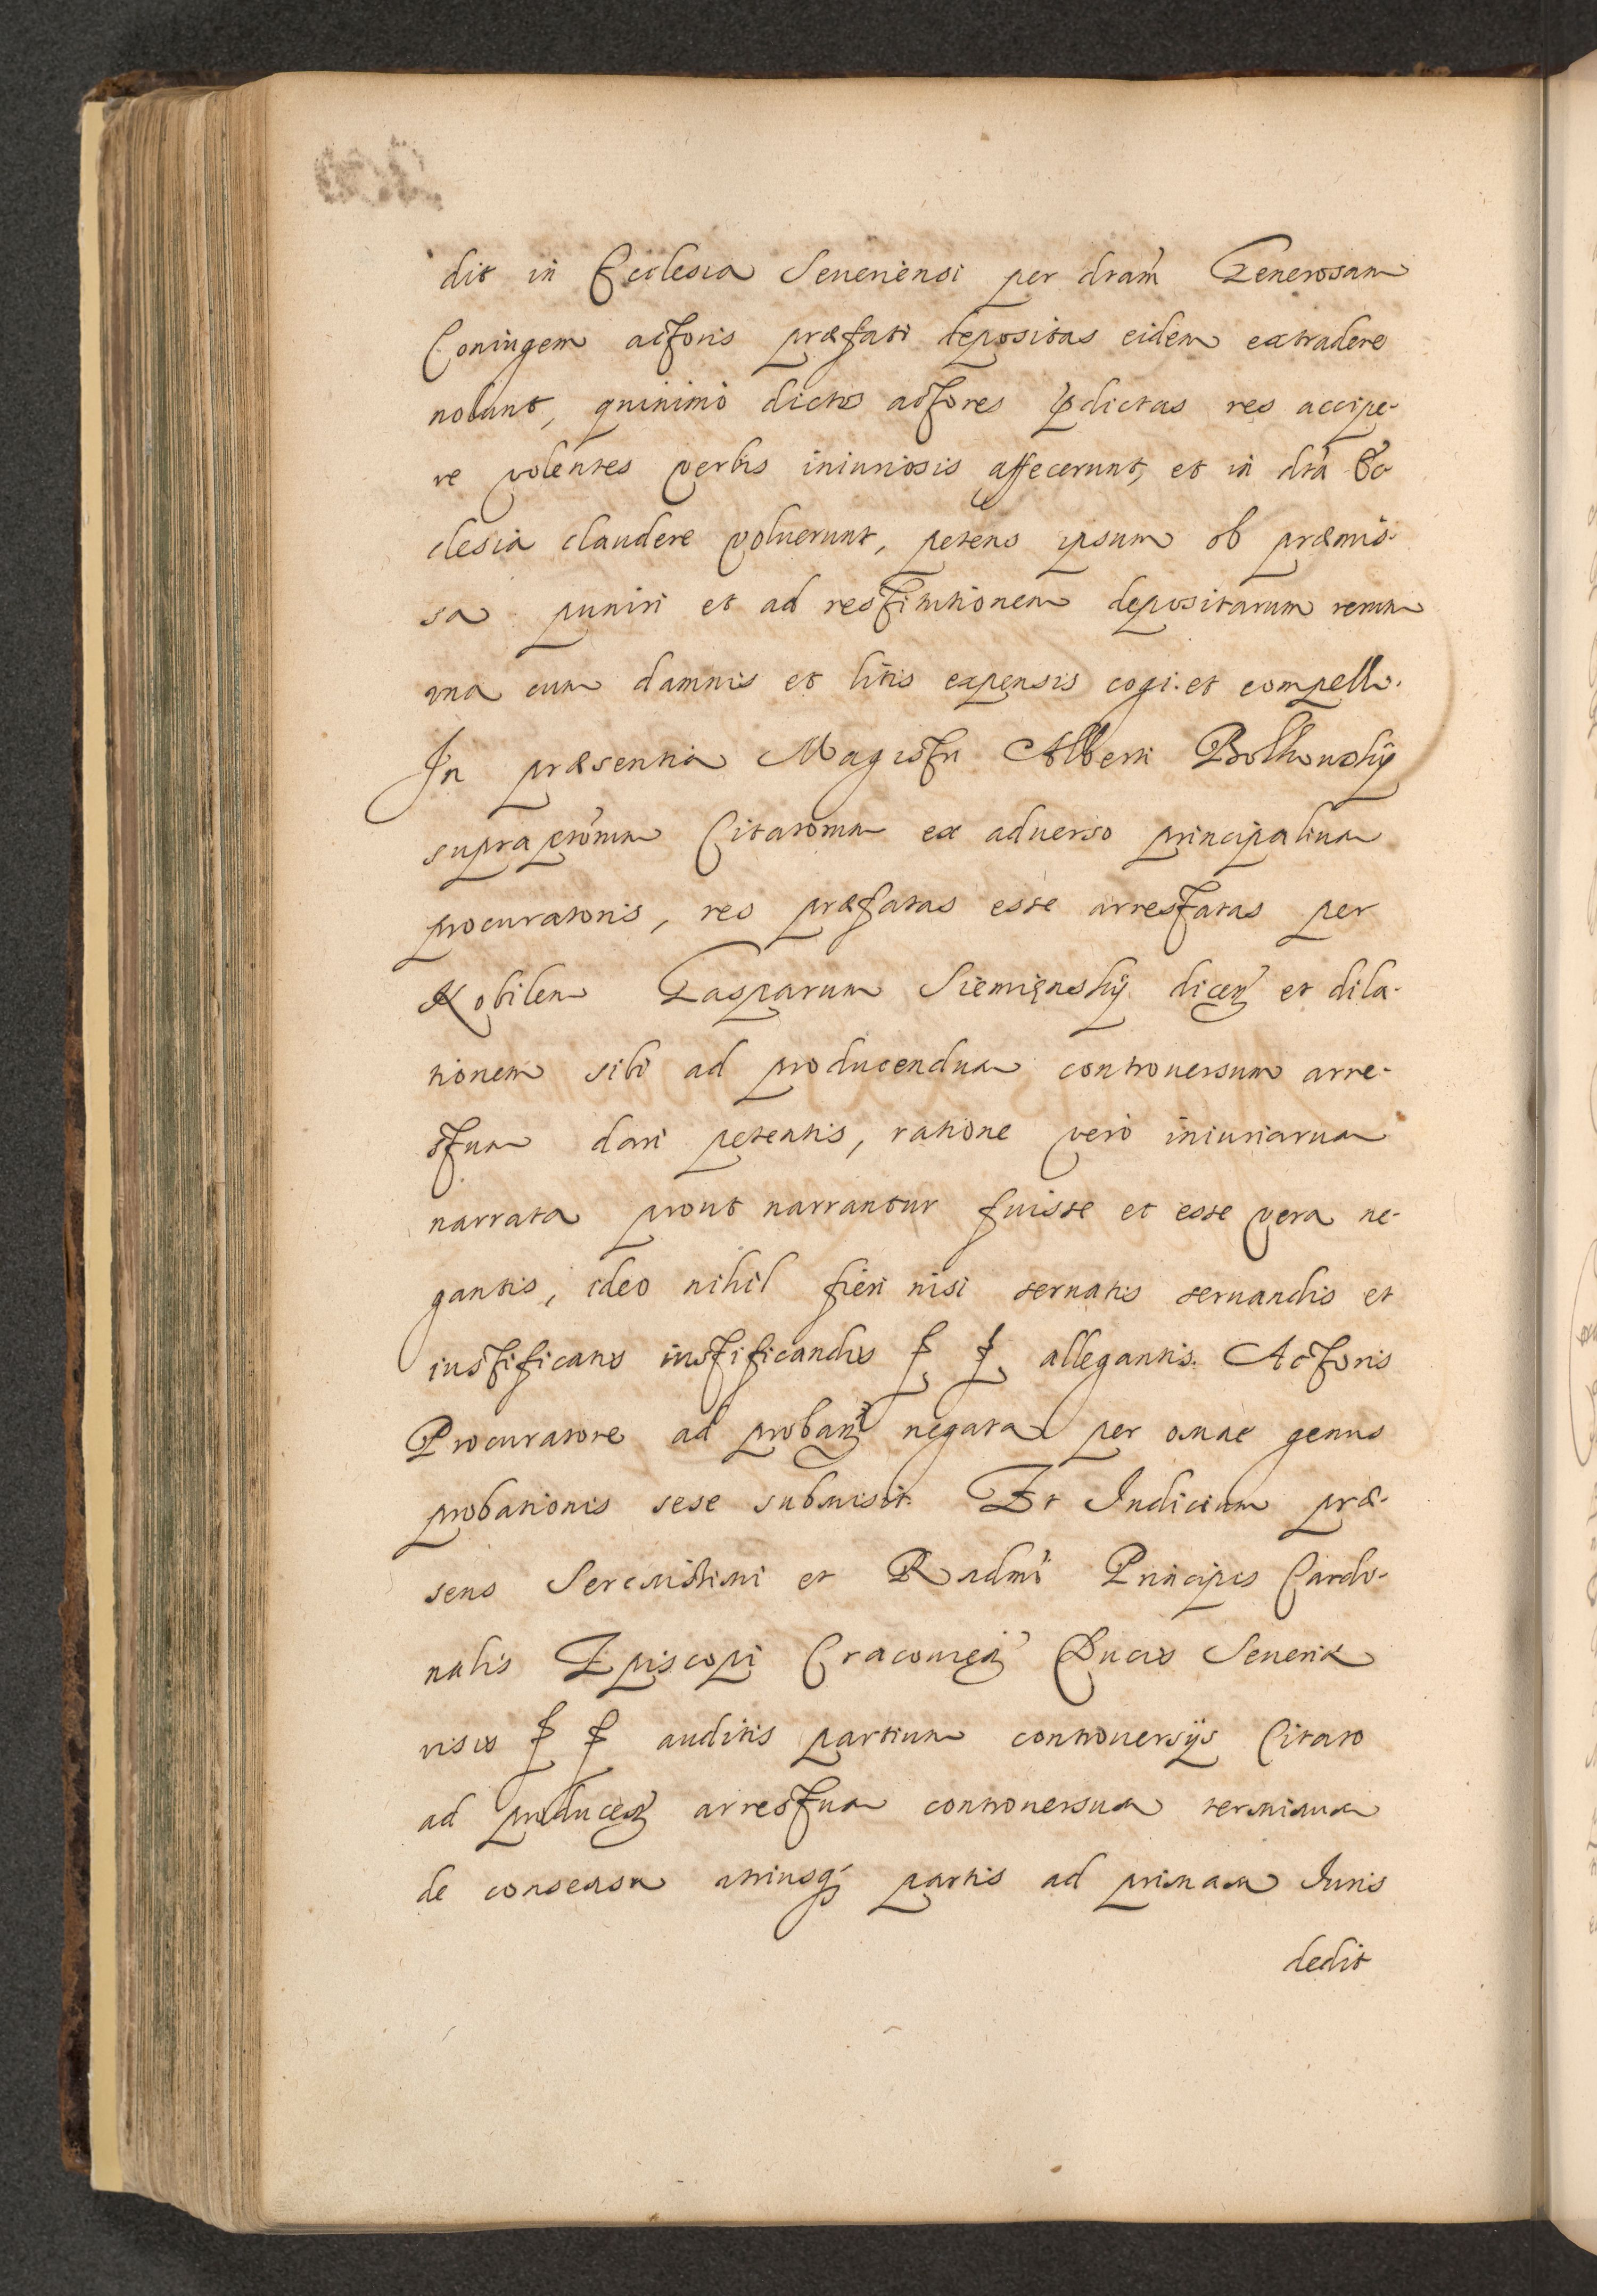 dit in Ecclesia Seueriensi per dtam Generosam
Coniugem actoris præfati depositas eidem extradere
nolunt, quinimò dictos actores pdictas res accipe-
re volentes verbis iniuriosis affecerunt, et in dta Ec
clesia claudere voluerunt, petens ipsum ob præmis-
sa puniri et ad restitutionem depositarum rerum
una cum damnis et litis expensis cogi et compelli.
In præsentia Magistri Alberti
supra Citatorum ex aduerso principalium
procuratoris, res præfatas esse arrestatas per
Nobilem Gasparum Siemięnskÿ dicen et dila-
tionem sibi ad producendum controuersum arre-
stum dari petentis, ratione verò iniuriarum
narrata prout narrantur fuisse et esse vera ne-
gantis, ideo nihil fieri nisi seruatis seruandis et
iustificatis iustificandis allegantis. Actoris
Procuratore ad proban negata per omne genus
probationis sese submisit. Et Iudicium præ-
sens Serenissimi et Radmi Principis Cardi-
nalis Episcopi Cracouien Ducis Seueriæ
visis auditis partium controuersijs Citato
ad producen arrestum controuersum terminum
de consensu utriusq partis ad primam Iuris
dedit